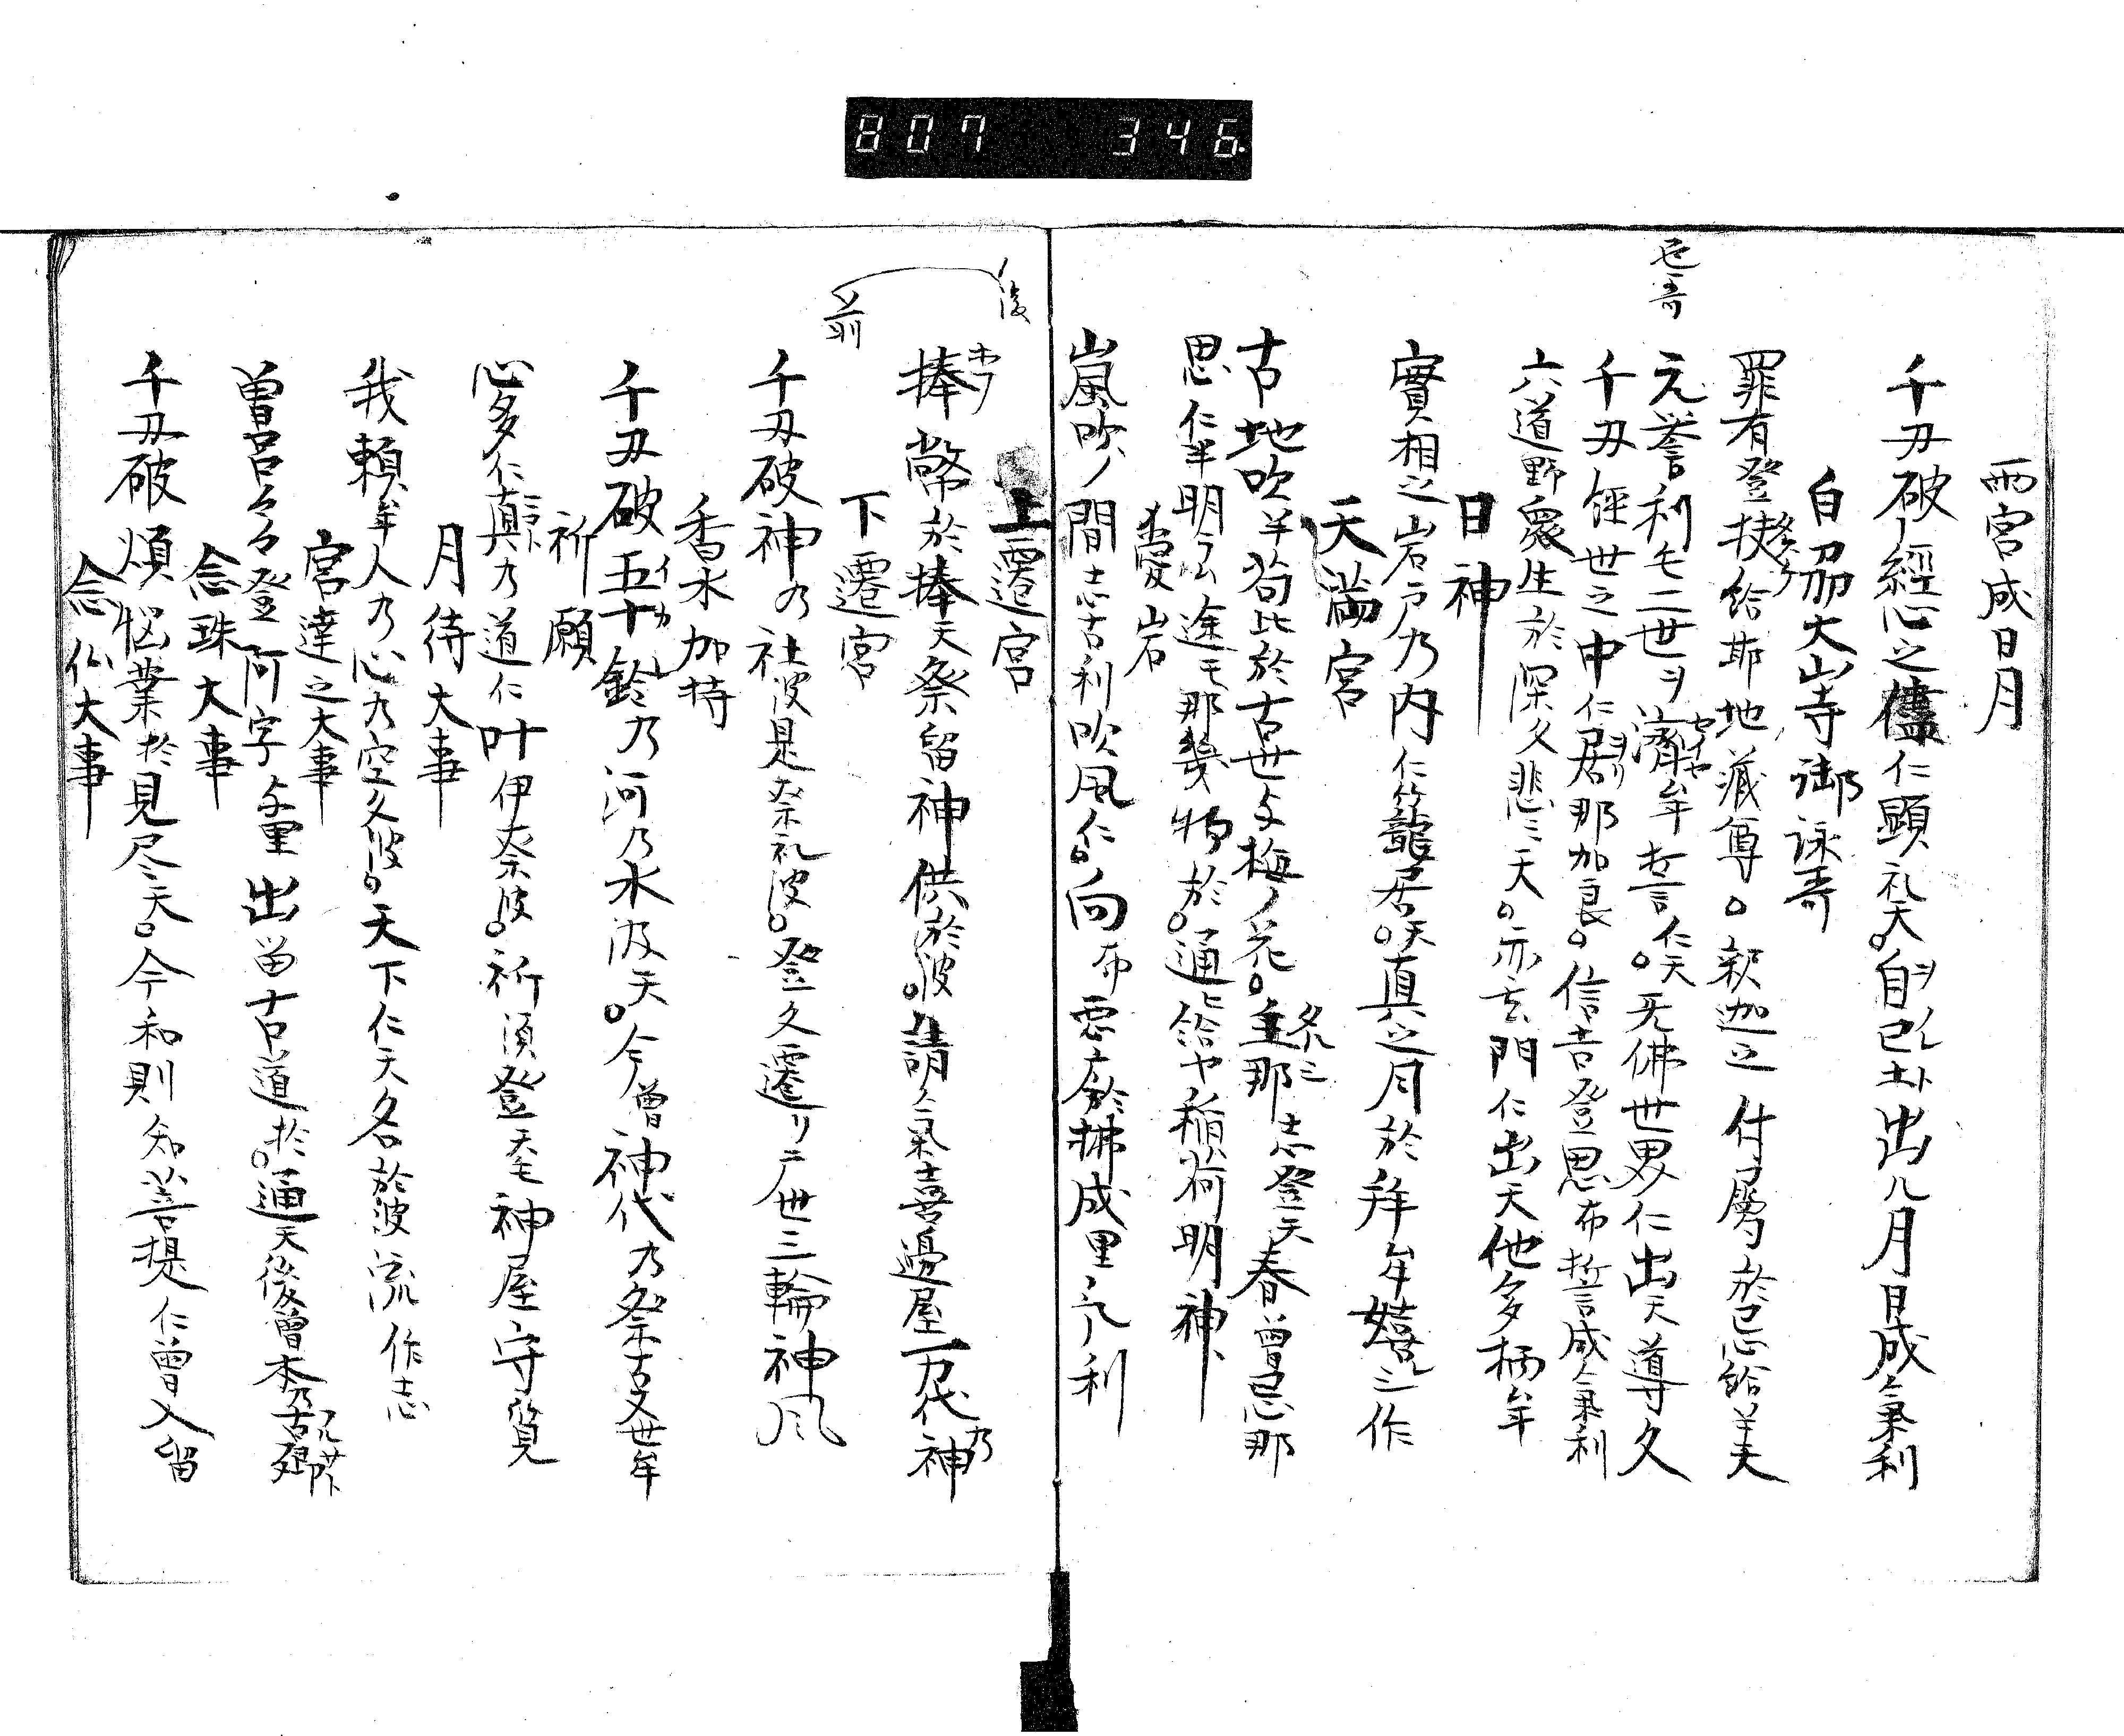 807 346
両宮成日月
千刃破ノ經心之儘仁顕礼天。自己ヲノレ出ル月日成氣利
白刕大山寺御詠哥
罪有登捄給耶地蔵尊。釈迦之付属於忘給羊夫
返哥
元誉利毛二世ヲ済セイヤ牟誓言仁天。无佛世界仁出天導久
千刃經世之中仁君那加良。信吉登思布誓成氣利
六道野衆生於深久悲ミ天。亦玄門仁出天他多栖牟
日神
實相之岩戸乃内仁籠居天。真之月於拜牟嬉シ三作
天満宮
古地吹羊匂比於古世与梅ノ花。主那志登天春曽忘那
思仁半明玄途毛那幾物於。通比給や稲荷明神
愛岩
嵐吹ノ間志古利吹風仁。向布悪广於拂成里氣利
上遷宮
後
捧幣於捧天祭留神供於波。請氣喜邊屋万代乃神
前
下遷宮
千刃破神乃社波是奈礼波。登久遷リ二世三輪神風
香水加持
千刃破五十鈴乃河乃水汲天。今曽神代乃祭古又世牟
祈願
心多仁真乃道仁叶伊奈波。祈須登天毛神屋守覧
月待大事
我頼牟人乃心乃空久波。天下仁天名於波流作志
宮達之大事
曽呂々々登阿字与里出留古道於。通天後曽本乃古郷
念珠大事
千刃破煩悩業於見尽天。今和則知菩提仁曽入留
念仏大事